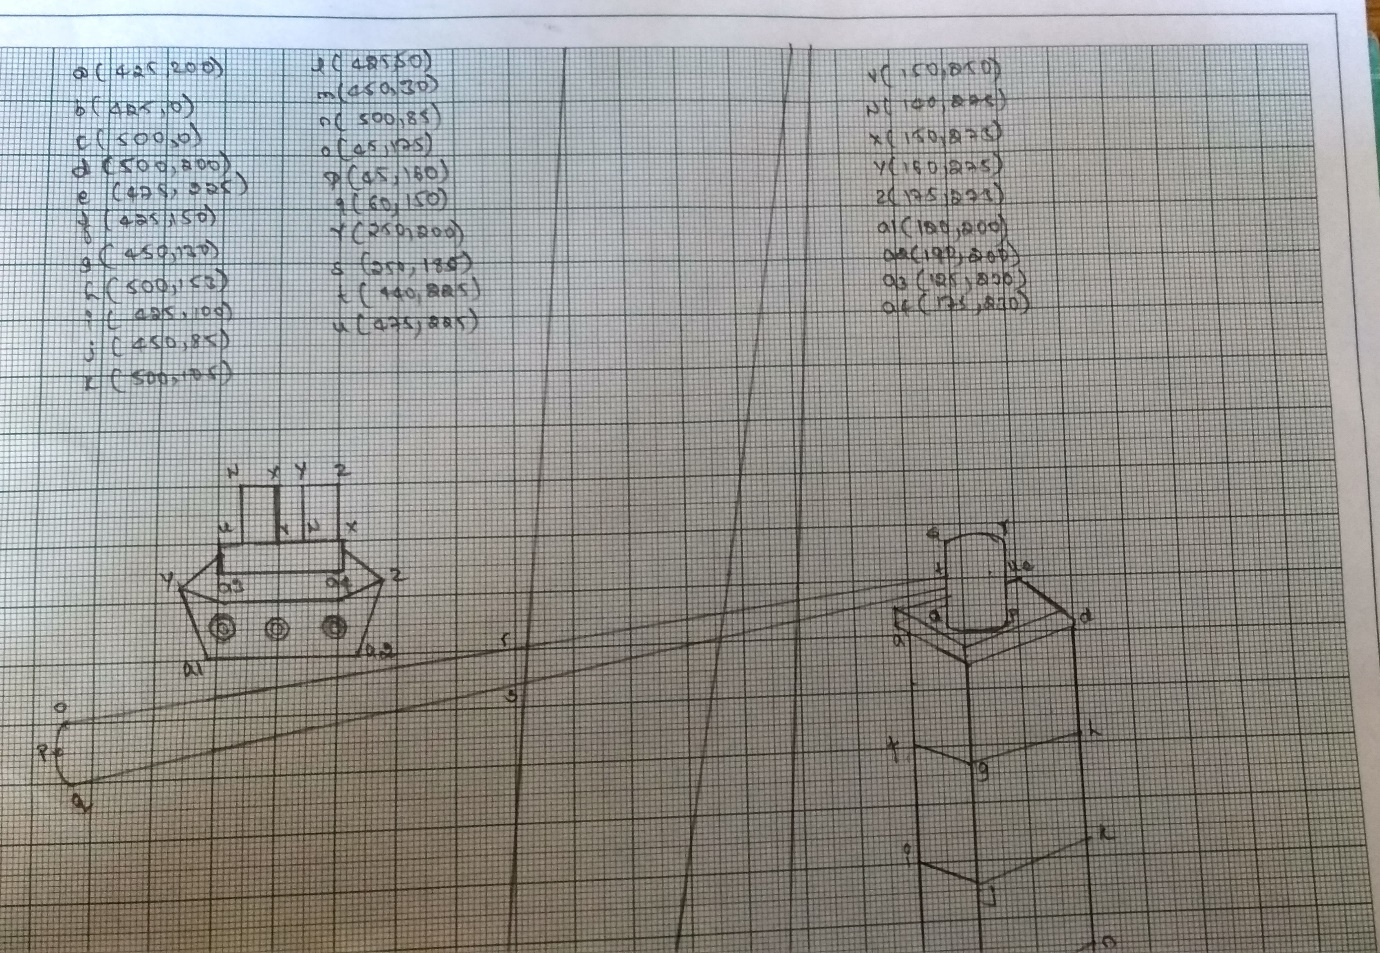 a(425,200)
b(425,0)
c(500,0)
d(500,200)
e(475,225)
f(425,150)
g(450,130)
h(500,153)
i(425,100)
j(450,85)
k(500,105)
l(425,50)
m(450,30)
n(500,85)
o(45,175)
p(45,160)
q(60,150)
r(250,200)
s(250,185)
t(440,225)
u(475,225)
v(150,250)
w(140,225)
x(150,275)
y(160,275)
z(175,275)
a1(120,200)
a2(190,200)
a3(125,220)
a4(175,220)
W X Y Z
Y a3 a4 Z
a1 a2
r
s
o
p
q
d
f
g
h
i
j
k
n